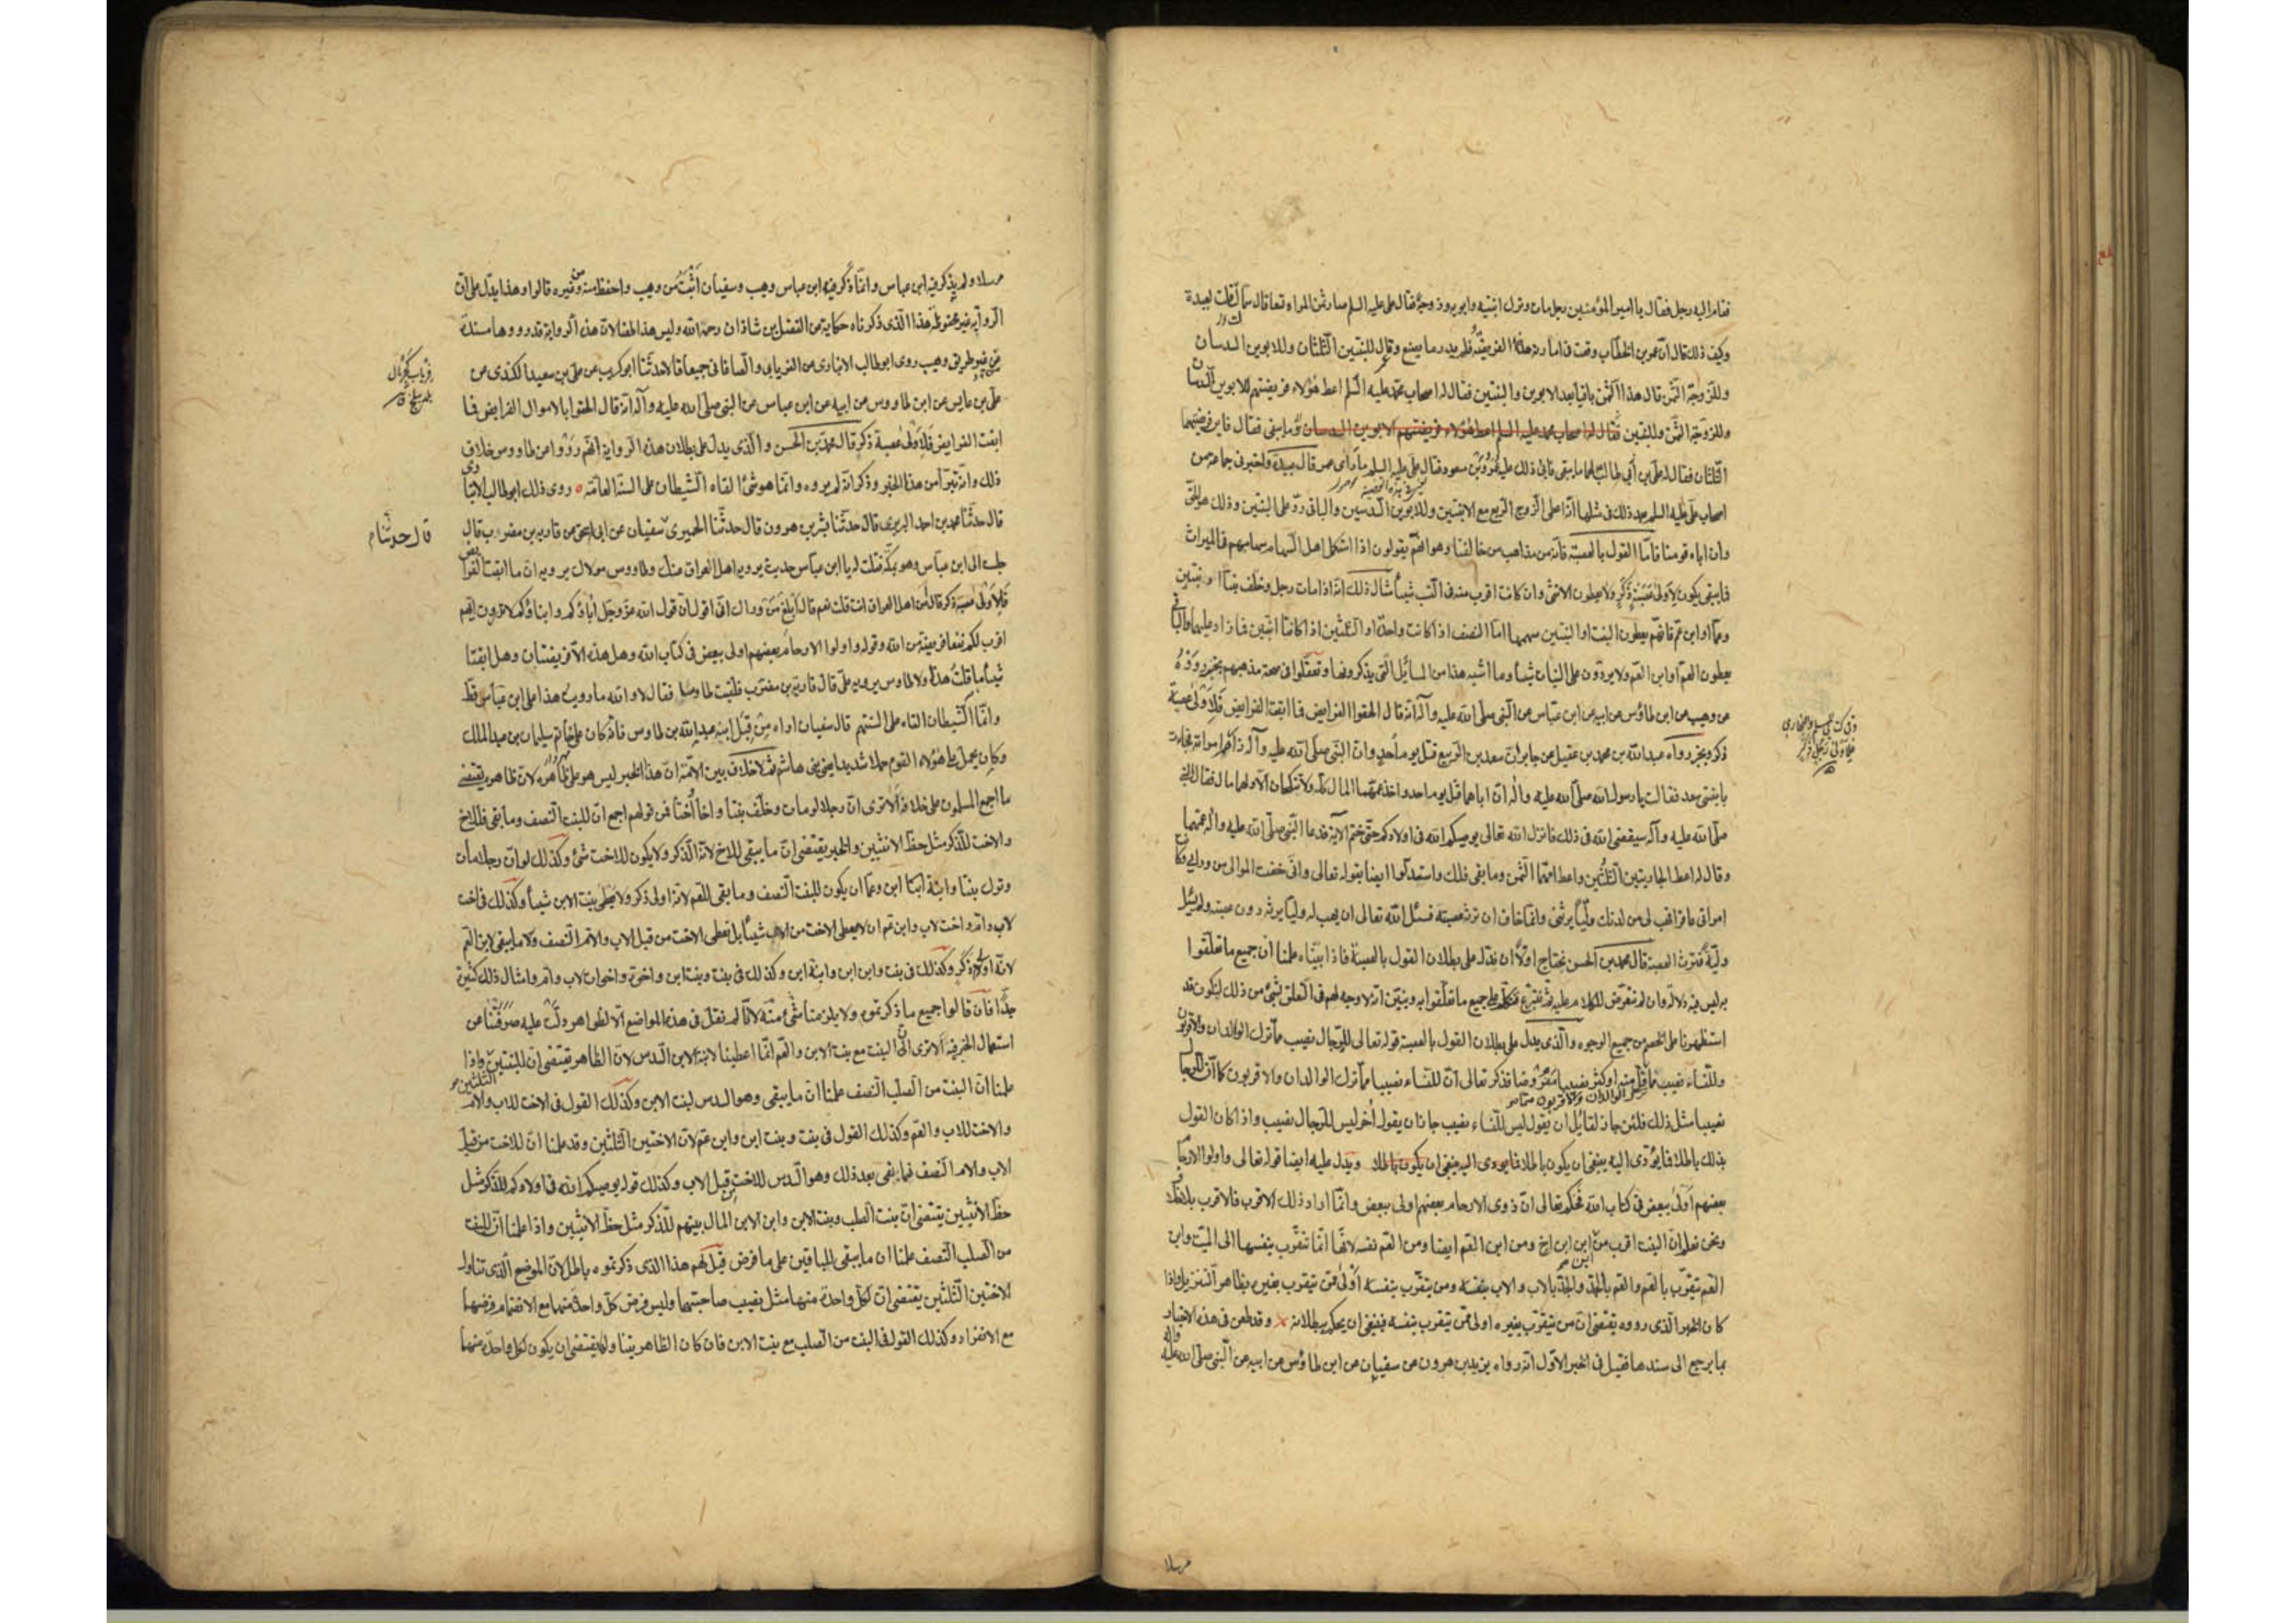 فقام اليه رجل فقال يا امير المؤمنين رجل مات وترك ابنتيه وابويه وزوجة فقال علي عليه السلم صار ثمن المراة تسعا قال سماك فقلت لعبيدة
وكيف ذلك قال ان عمر بن الخطاب وقعت في امارته هذه الفريضة فلم يدر ما يصنع وقال للبنتين الثلثان وللابوين السدسان
وللزوجة الثمن قال هذا الثمن باقيا بعد الابوين والبنتين فقال له اصحاب محمد عليه السلم اعط هؤلاء فريضتهم للابوين السدسان
وللزوجة الثمن وللبنتين فقال له اصحاب محمد عليه السلم اعط هؤلاء فريضتهم الابوين السدسان ما يبقى فقال فاين فريضتهما
الثلثان فقال له علي بن أبي طالب لهما ما يبقى فابى ذلك عليه عمر وبن مسعود فقال علي عليه السلم ما رأى عمر قال عبيدة واخبرني جماعة من
اصحاب علي عليه السلم بعد ذلك في مثلها انه اعطى الزوج الربع مع الابنتين وللابوين السدسين والباقي رد على البنتين وذلك هو الحق
وان اباه قومنا فامّا القول بالعصبة فانه من مذاهب من خالفنا وهو انهم يقولون اذا استكمل اهل السهام سهامهم في الميراث
فما يبقى يكون لأولى عصبة ذكر ولا يعطون الانثى وان كانت اقرب منه في النسب شيئا مثال ذلك انه اذا مات رجل وخلف بنتا او بنتين
وعما او ابن عم فانهم يعطون البنت او البنتين سهمهما اما النصف اذا كانت واحدة او الثلثين اذا كانتا اثنتين فما زاد عليهما والباقي
يعطون العم او ابن العم ولا يردون على البنات شيئا وما اشبه هذا من المسائل التي يذكرونها وتعلقوا في صحة مذهبهم بخبر رووه
عن وهيب عن ابن طاوس عن ابيه عن ابن عباس عن النبي صلى الله عليه وآله انه قال الحقوا الفرايض فما ابقت الفرايض فلأولى عصبة
ذكر وبخبر رواه عبد الله بن محمد بن عقيل عن جابر ان سعد بن الربيع قتل يوم أحد وان النبي صلى الله عليه وآله زار امراته فجاءت
بابنتي سعد فقالت يا رسول الله صلى الله عليه واله ان اباهما قتل يوم احد واخذ عمهما المال كله ولا تنكحان الا ولهما مال فقال النبي
صلى الله عليه وآله سيقضي الله في ذلك فانزل الله تعالى يوصيكم الله في اولادكم حتى ختم الآية فدعا النبي صلى الله عليه واله عمهما
وقال له اعط الجاريتين الثلثين واعط امهما الثمن وما بقي فلك واستدلوا ايضا بقوله تعالى واني خفت الموالي من ورائي وكانت
امراتي عاقرا فهب لي من لدنك وليا يرثني وانما خاف ان ترثه عصبته فسئل الله تعالى ان يهب له وليا يرثه دون عصبته ولم يسئل
ولية فترث العصبة قال محمد بن الحسن نحتاج اولا ان ندل على بطلان القول بالعصبة فاذا بيناه علمنا ان جميع ما تعلقوا
به ليس فيه دلالة وان لم نتعرض للكلام عليه ثم نشرع فنتكلم على جميع ما تعلقوا به ونبين انه لا وجه لهم في التعلق بشئ من ذلك لنكون قد
استظهرنا على الخصم من جميع الوجوه والذي يدل على بطلان القول بالعصبة قوله تعالى للرجال نصيب مما ترك الوالدان والاقربون
وللنساء نصيب مما ترك الوالدان والاقربون مما قل منه او كثر نصيبا مفروضا فذكر تعالى ان للنساء نصيبا مما ترك الوالدان والاقربون كما ان للرجال
نصيبا مثل ذلك فلئن جاز لقائل ان يقول ليس للنساء نصيب جاز ان يقول آخر ليس للرجال نصيب واذا كان القول
بذلك باطلا فما يؤدي اليه ينبغي ان يكون باطلا فما يودى اليه ينبغى ان يكون باطلا ويدل عليه ايضا قوله تعالى واولوا الارحام
بعضهم أولى ببعض في كتاب الله فحكم تعالى ان ذوي الارحام بعضهم اولى ببعض وانما اراد ذلك الاقرب فالاقرب بلا خلاف
ونحن نعلم ان البنت اقرب من ابن ابن اخ ومن ابن العم ايضا ومن العم نفسه لانها انما تتقرب بنفسها الى الميت وابن
العم يتقرب بالعم والعم بالجد والجد بالاب والاب بنفسه ومن يتقرب بنفسه أولى ممن يتقرب بغيره بظاهر التنزيل واذا
كان الخبر الذي رووه يقتضي ان من يتقرب بغيره اولى ممن يتقرب بنفسه فينبغي ان يحكم ببطلانه وقد طعن في هذه الاخبار
بما يرجع الى سندها فقيل في الخبر الاول انه رواه يزيد بن هرون عن سفيان عن ابن طاوس عن ابيه عن النبي صلى الله عليه وآله
مرسلا
مرسلا ولم يذكر فيه ابن عباس وانما ذكر فيه ابن عباس وهيب وسفيان أثبت من وهيب واحفظ منه ومن غيره قالوا وهذا يدل على ان
الرواية غير محفوظة هذا الذي ذكرناه حكاية عن الفضل بن شاذان رحمه الله وليس هذا لان هذه الرواية قد رووها مسندة
من غير طريق وهيب روى ابو طالب الانباري عن الفريابي والصاغاني جميعا قالا حدثنا ابو كريب عن علي بن سعيد الكندي عن
علي بن عابس عن ابن طاووس عن ابيه عن ابن عباس عن النبي صلى الله عليه وآله انه قال الحقوا بالاموال الفرايض فما
ابقت الفرايض فلأولى عصبة ذكر قال محمد بن الحسن والذي يدل على بطلان هذه الرواية انهم رووا عن طاووس خلاف
ذلك وانه تبرأ من هذا الخبر وذكر انه لم يروه وانما هو شئ القاه الشيطان على السنة العامة روى ذلك ابو طالب الانباري
قال حدثنا محمد بن احمد البربري قال حدثنا بشر بن هرون قال حدثنا الحميري سفيان عن ابي اسحق عن قاربة بن مضرب قال
قال حدثنا
جلست الى ابن عباس وهو بمكة فقلت له يا ابن عباس حديث يرويه اهل العراق عنك وطاووس مولاك يرويه ان ما ابقت الفرايض
فلأولى عصبة ذكر قال أمن اهل العراق انت قلت نعم قال أبلغ من وراك اني اقول ان قول الله عز وجل آباؤكم وابناؤكم لا تدرون ايهم
اقرب لكم نفعا فريضة من الله وقوله واولوا الارحام بعضهم اولى ببعض في كتاب الله وهل هذه الا فريضتان وهل ابقتا
شيئا ما قلت هذا ولا طاوس يرويه علي قال قاربة بن مضرب فلقيت طاوسا فقال لا والله ما رويت هذا على ابن عباس قط
وانما الشيطان القاه على السنتهم قال سفيان اراه من قبل ابنه عبد الله بن طاوس فانه كان على خاتم سليمان بن عبد الملك
وكان يحمل على هؤلاء القوم حملا شديدا يعني بني هاشم ثم لا خلاف بين الامة ان هذا الخبر ليس هو على ظاهره لان ظاهره يقتضي
ما اجمع المسلمون على خلافه ألا ترى ان رجلا لو مات وخلف بنتا واخا وأختا فمن قولهم اجمع ان للبنت النصف وما بقي فللاخ
والاخت للذكر مثل حظ الانثيين والخبر يقتضي ان ما يبقى للاخ لانه الذكر ولا يكون للاخت شئ وكذلك لو ان رجلا مات
وترك بنتا وابنة ابن وعما ان يكون للبنت النصف وما بقي للعم لانه اولى ذكر ولا يعطى بنت الابن شيئا وكذلك في اخت
لاب وام واخت لاب وابن عم ان لا يعطى الاخت من الاب شيئا بل تعطى الاخت من قبل الاب والام النصف وما يبقى لابن العم
لانه اولى ذكر وكذلك في بنت وابن ابن وابنة ابن وكذلك في بنت وبنت ابن واخوة واخوات لاب وام وامثال ذلك كثيرة
جدا فان قالوا جميع ما ذكرتموه ولا يلزمنا شئ منه لانا لم نقل في هذه المواضع الا لظواهر دلت عليه صرفتنا عن
استعمال الخبر فيه ألا ترى ان البنت مع بنت الابن والعم انما اعطينا لابنة الابن السدس لان الظاهر يقتضي ان للبنتين الثلثين واذا
علمنا ان البنت من الصلب النصف علمنا ان ما يبقى وهو السدس لبنت الابن وكذلك القول في الاخت للاب والام
والاخت للاب والعم وكذلك القول في بنت وبنت ابن وابن عم لان الاختين الثلثين وقد علمنا ان للاخت من قبل
الاب والام النصف فما بقى بعد ذلك وهو السدس للاخت من قبل الاب وكذلك قوله يوصيكم الله في اولادكم للذكر مثل
حظ الانثيين يقتضي ان بنت الصلب وبنت الابن وابن الابن المال بينهم للذكر مثل حظ الانثيين واذا علمنا ان للبنت
من الصلب النصف علمنا ان ما يبقى للباقين على ما فرض قيل لهم هذا الذي ذكرتموه باطل لان الموضع الذي تناول
الاختين الثلثين يقتضي ان لكل واحدة منهما مثل نصيب صاحبتهما وليس فرض كل واحدة منهما مع الانضمام فرضهما
مع الانفراد وكذلك القول في البنت من الصلب مع بنت الابن فان كان الظاهر يتناولهما يقتضي ان يكون لكل واحدة منهما